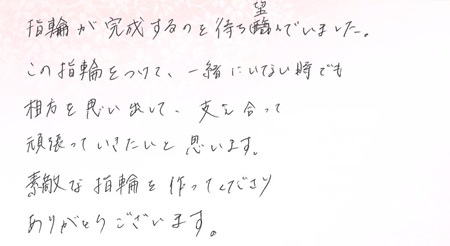 指輪が完成するのを待ち望んでいました。
この指輪をつけて、一緒にいてない時でも
相方を思い出して、支え合って
頑張っていきたいと思います。
素敵な指輪を作ってくださり
ありがとうございます。